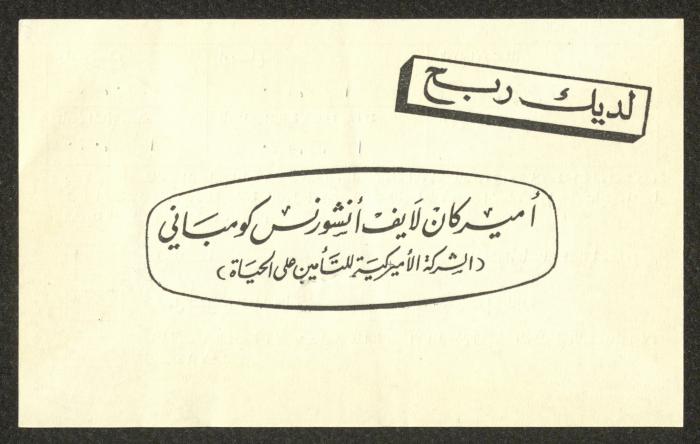 لديك ربح
أميركان لايف أنشورنس كومباني
(الشركة الأميركية للتأمين على الحياة)